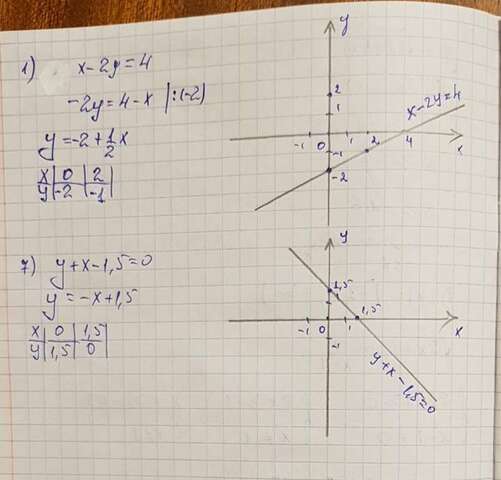 1) x-2y=4
-2y=4-x |:(-2)
y=-2+1/2x
x | 0 | 2
y | -2 | -1
y
2
1
x-2y=4
-1 0 1 2 4 x
-1
-2
7) y+x-1,5=0
y=-x+1,5
x | 0 | 1,5
y | 1,5 | 0
y
1,5
1
1,5
-1 0 1 x
-1
y+x-1,5=0